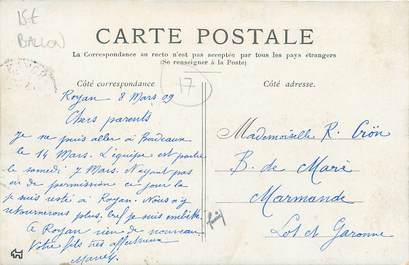 15€
BALLON
CARTE POSTALE
La Correspondance au recto n'est pas acceptée par tous les pays étrangers
(Se renseigner à la Poste)
Côté correspondance
17
Côté adresse.
Royan 8 Mars 09
Chers parents
Je ne puis aller à Bordeaux
le 14 Mars. L'équipe est partie
le samedi 7 Mars. N'ayant pas
eu de permission ce jour là
je suis resté à Royan. Nous n'y
retournerons plus. Bref je suis embêté
A Royan rien de nouveau
Votre fils très affectueux
Mademoiselle R. Crön
B. de Maré
Marmande
Lot et Garonne